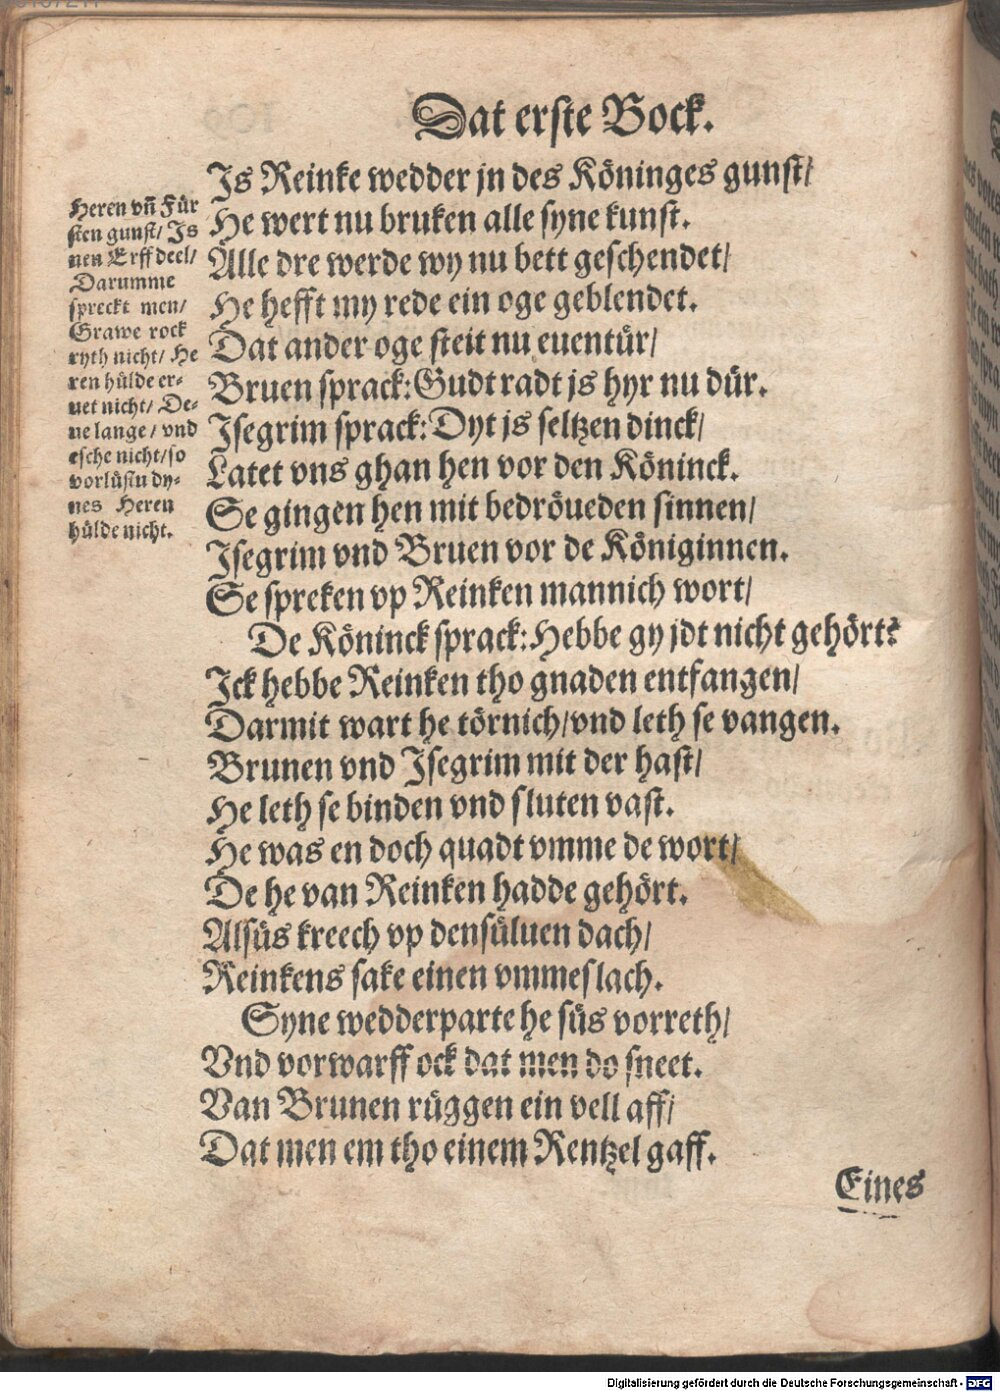 Dat erste Bock.
Is Reinke wedder jn des Köninges gunst/
He wert nu bruken alle syne kunst.
Alle dre werde wy nu bett geschendet/
He hefft my rede ein oge geblendet.
Dat ander oge steit nu euentür/
Bruen sprack: Gudt radt js hyr nu dür.
Isegrim sprack: Dyt js seltzen dinck/
Latet vns ghan hen vor den Köninck.
Se gingen hen mit bedröueden sinnen/
Isegrim vnd Bruen vor de Königinnen.
Se spreken vp Reinken mannich wort/
De Köninck sprack: Hebbe gy jdt nicht gehört?
Ick hebbe Reinken tho gnaden entfangen/
Darmit wart he törnich/vnd leth se vangen.
Brunen vnd Isegrim mit der hast/
He leth se binden vnd sluten vast.
He was en doch quadt vmme de wort/
De he van Reinken hadde gehört.
Alsüs kreech vp densüluen dach/
Reinkens sake einen vmmeslach.
Syne wedderparte he süs vorreth/
Vnd vorwarff ock dat men do sneet.
Van Brunen rüggen ein vell aff/
Dat men em tho einem Rentzel gaff.
Eines
Heren vñ Für
sten gunst/ Is
nen Erffdeel/
Darumme
spreckt men/
Grawe rock
ryth nicht/ He
ren hülde er-
uet nicht/ De-
ne lange/ vnd
esche nicht/so
vorlüstu dy-
nes Heren
hülde nicht.
Digitalisierung gefördert durch die Deutsche Forschungsgemeinschaft - DFG